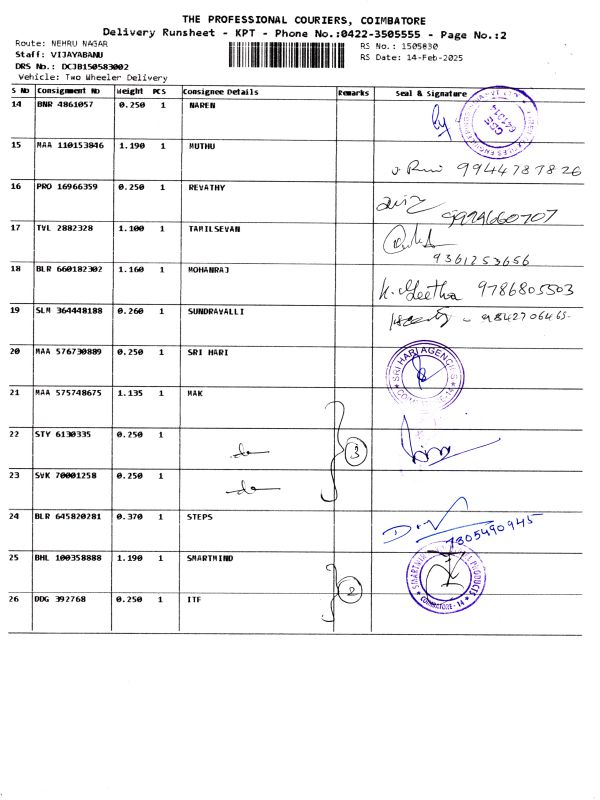 THE PROFESSIONAL COURIERS, COIMBATORE
Delivery Runsheet - KPT - Phone No.:0422-3505555 - Page No.:2
Route: NEHRU NAGAR
RS No.: 1505830
Staff: VIJAYABANU
RS Date: 14-Feb-2025
DRS No.: DCJB150583002
Vehicle: Two Wheeler Delivery
S No Consignment No Weight PCS Consignee Details Remarks Seal & Signature
14 BNR 4861057 0.250 1 NAREN
15 MAA 110153846 1.190 1 MUTHU
9944787826
16 PRO 16966359 0.250 1 REVATHY
9994660707
17 TVL 2882328 1.100 1 TAMILSEVAN
9361253656
18 BLR 660182302 1.160 1 MOHANRAJ
K. Geetha 9786805503
19 SLM 364448188 0.260 1 SUNDRAVALLI
9842706465
20 MAA 576730889 0.250 1 SRI HARI
SRI HARI AGENCIES
21 MAA 575748675 1.135 1 MAK
22 STY 6130335 0.250 1
do
3
23 SVK 70001258 0.250 1
do
24 BLR 645820281 0.370 1 STEPS
7305490945
25 BHL 100358888 1.190 1 SMARTMIND
PRODUCTS
COIMBATORE - 14
2
26 DDG 392768 0.250 1 ITF